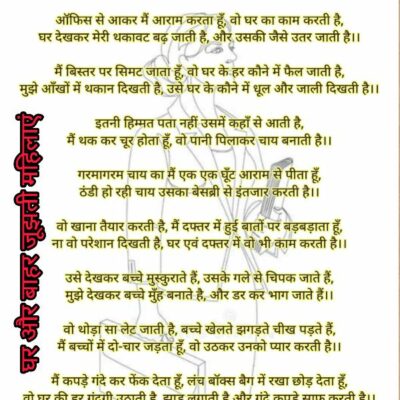 ऑफिस से आकर मैं आराम करता हूँ, वो घर का काम करती है,
घर देखकर मेरी थकावट बढ़ जाती है, और उसकी जैसे उतर जाती है।।
मैं बिस्तर पर सिमट जाता हूँ, वो घर के हर कौने में फैल जाती है,
मुझे आँखों में थकान दिखती है, उसे घर के कौने में धूल और जाली दिखती है।।
इतनी हिम्मत पता नहीं उसमें कहाँ से आती है,
मैं थक कर चूर होता हूँ, वो पानी पिलाकर चाय बनाती है।।
गरमागरम चाय का मैं एक एक घूँट आराम से पीता हूँ,
ठंडी हो रही चाय उसका बेसब्री से इंतजार करती है।।
वो खाना तैयार करती है, मैं दफ्तर में हुई बातों पर बड़बड़ाता हूँ,
ना वो परेशान दिखती है, घर एवं दफ्तर में वो भी काम करती है।।
उसे देखकर बच्चे मुस्कुराते हैं, उसके गले से चिपक जाते हैं,
मुझे देखकर बच्चे मुँह बनाते है, और डर कर भाग जाते हैं।।
वो थोड़ा सा लेट जाती है, बच्चे खेलते झगड़ते चीख पड़ते हैं,
मैं बच्चों में दो-चार जड़ता हूँ, वो उठकर उनको प्यार करती है।।
मैं कपड़े गंदे कर फेंक देता हूँ, लंच बॉक्स बैग में रखा छोड़ देता हूँ,
वो घर की हर गंदगी उठाती है, झाड़ू लगाती है और गंदे कपड़े साफ करती है।।
घर और बाहर जूझती महिलाएं